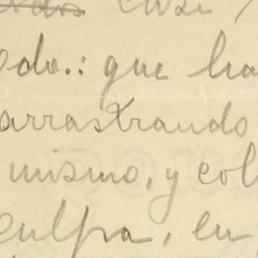 casi
odo.: que ha
arrastrando
mismo, y col
culpa, en